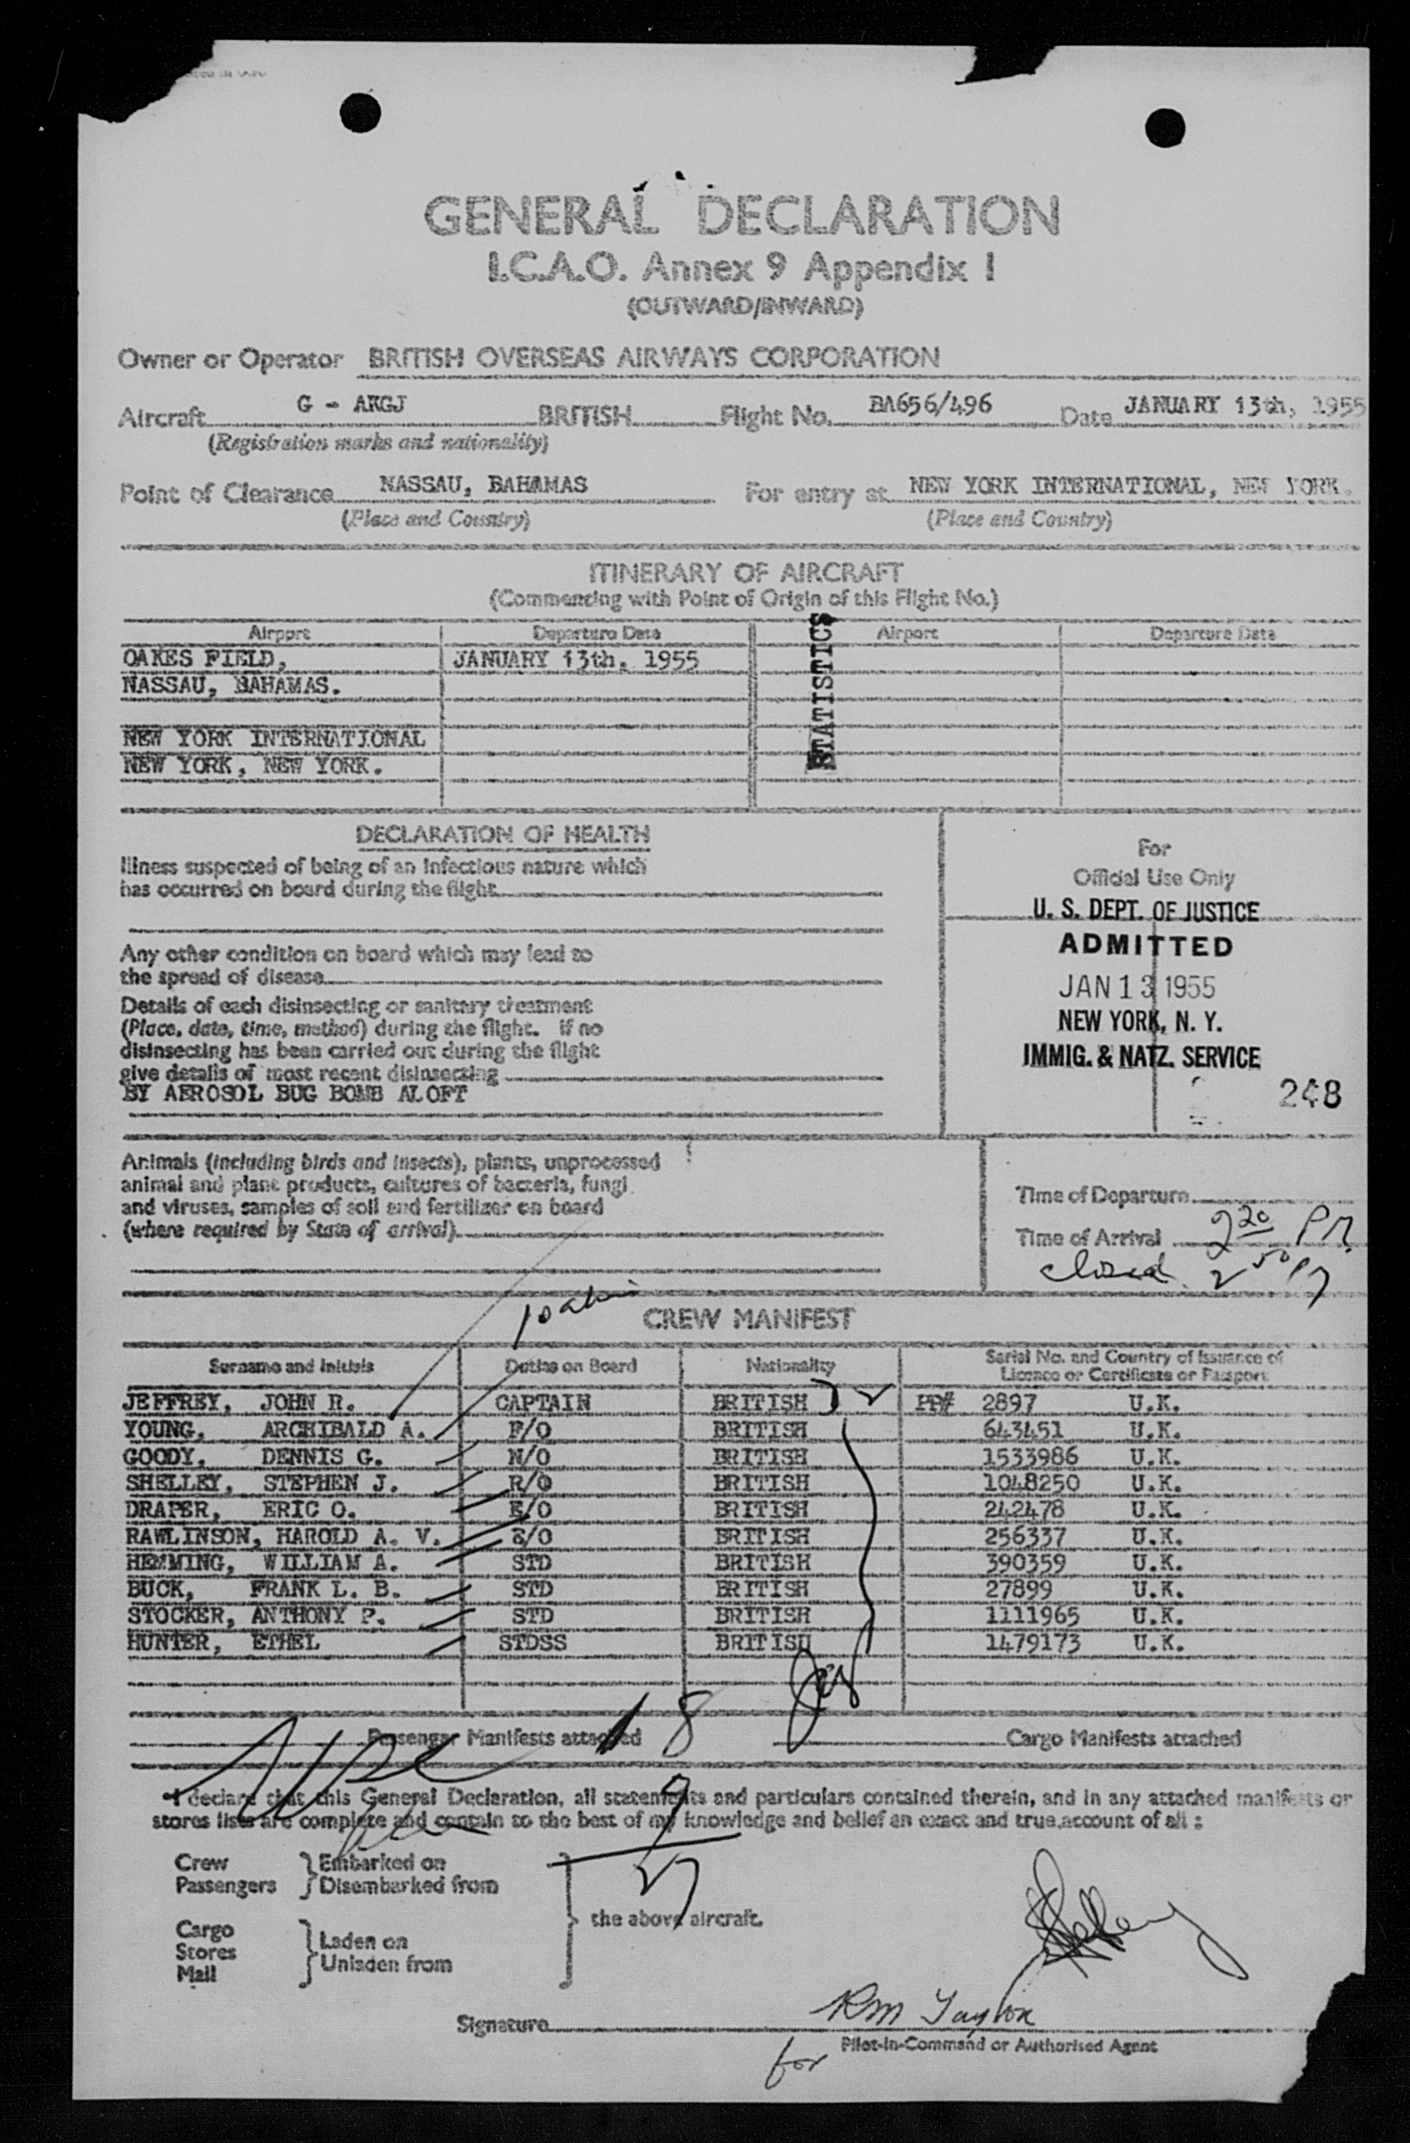 GENERAL DECLARATION
I.C.A.O. Annex 9 Appendix I
(OUTWARD/INWARD)
Owner or Operator BRITISH OVERSEAS AIRWAYS CORPORATION
Aircraft G - AKGJ BRITISH Flight No. BA656/496 Date JANUARY 13th, 1955
(Registration marks and nationality)
Point of Clearance NASSAU, BAHAMAS For entry at NEW YORK INTERNATIONAL, NEW YORK.
(Place and Country) (Place and Country)
ITINERARY OF AIRCRAFT
(Commencing with Point of Origin of this Flight No.)
Airport Departure Date Airport Departure Date
OAKES FIELD, JANUARY 13th, 1955
NASSAU, BAHAMAS.
NEW YORK INTERNATIONAL
NEW YORK, NEW YORK.
STATISTICS
DECLARATION OF HEALTH
Illness suspected of being of an infectious nature which
has occurred on board during the flight
Any other condition on board which may lead to
the spread of disease
Details of each disinsecting or sanitary treatment
(Place, date, time, method) during the flight. If no
disinsecting has been carried out during the flight
give details of most recent disinsecting
BY AEROSOL BUG BOMB ALOFT
For
Official Use Only
U. S. DEPT. OF JUSTICE
ADMITTED
JAN 13 1955
NEW YORK, N. Y.
IMMIG. & NATZ. SERVICE
248
Animals (including birds and insects), plants, unprocessed
animal and plant products, cultures of bacteria, fungi
and viruses, samples of soil and fertilizer on board
(where required by State of arrival)
Time of Departure
Time of Arrival 2 20 PM
closed 2 50 PM
CREW MANIFEST
Surname and Initials Duties on Board Nationality Serial No. and Country of Issuance of
Licence or Certificate or Passport
JEFFREY, JOHN R. CAPTAIN BRITISH PP# 2897 U.K.
YOUNG, ARCHIBALD A. F/O BRITISH 643451 U.K.
GOODY, DENNIS G. N/O BRITISH 1533986 U.K.
SHELLEY, STEPHEN J. R/O BRITISH 1048250 U.K.
DRAPER, ERIC O. E/O BRITISH 242478 U.K.
RAWLINSON, HAROLD A. V. E/O BRITISH 256337 U.K.
HEMMING, WILLIAM A. STD BRITISH 390359 U.K.
BUCK, FRANK L. B. STD BRITISH 27899 U.K.
STOCKER, ANTHONY P. STD BRITISH 1111965 U.K.
HUNTER, ETHEL STDSS BRITISH 1479173 U.K.
Passenger Manifests attached 18 Cargo Manifests attached
I declare that this General Declaration, all statements and particulars contained therein, and in any attached manifests or
stores lists are complete and contain to the best of my knowledge and belief an exact and true account of all :
9
27
Crew Embarked on
Passengers Disembarked from
the above aircraft.
Cargo
Stores Laden on
Mail Unladen from
Signature RM Taylor
for Pilot-in-Command or Authorised Agent